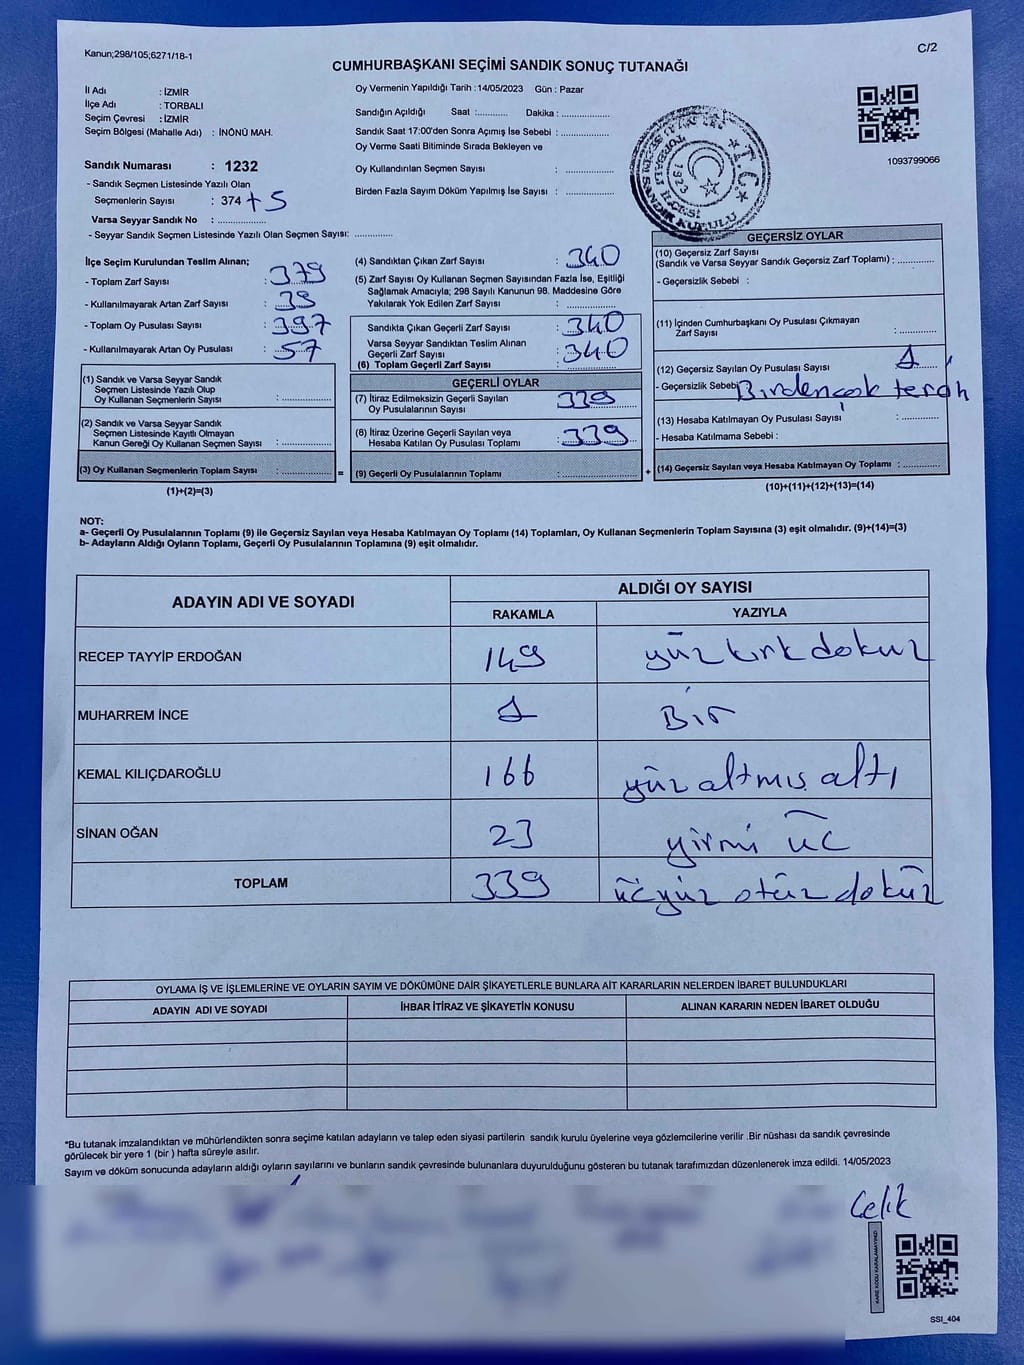 Kanun;298/105;6271/18-1
C/2
CUMHURBAŞKANI SEÇİMİ SANDIK SONUÇ TUTANAĞI
İl Adı : İZMİR
İlçe Adı : TORBALI
Seçim Çevresi : İZMİR
Seçim Bölgesi (Mahalle Adı) : İNÖNÜ MAH.
Sandık Numarası : 1232
- Sandık Seçmen Listesinde Yazılı Olan
Seçmenlerin Sayısı : 374 + 5
Varsa Seyyar Sandık No : ................
- Seyyar Sandık Seçmen Listesinde Yazılı Olan Seçmen Sayısı: .............
Oy Vermenin Yapıldığı Tarih : 14/05/2023 Gün : Pazar
Sandığın Açıldığı Saat :........... Dakika : ................
Sandık Saat 17:00'den Sonra Açımış İse Sebebi : ................
Oy Verme Saati Bitiminde Sırada Bekleyen ve
Oy Kullandırılan Seçmen Sayısı : ................
Birden Fazla Sayım Döküm Yapılmış İse Sayısı : ................
T.C.
1923
SANDIK KURULU
1093799066
İlçe Seçim Kurulundan Teslim Alınan;
- Toplam Zarf Sayısı : 379
- Kullanılmayarak Artan Zarf Sayısı : 39
- Toplam Oy Pusulası Sayısı : 397
- Kullanılmayarak Artan Oy Pusulası : 57
(1) Sandık ve Varsa Seyyar Sandık
Seçmen Listesinde Yazılı Olup
Oy Kullanan Seçmenlerin Sayısı : ................
(2) Sandık ve Varsa Seyyar Sandık
Seçmen Listesinde Kayıtlı Olmayan
Kanun Gereği Oy Kullanan Seçmen Sayısı : ................
(3) Oy Kullanan Seçmenlerin Toplam Sayısı : ................ =
(1)+(2)=(3)
(4) Sandıktan Çıkan Zarf Sayısı : 340
(5) Zarf Sayısı Oy Kullanan Seçmen Sayısından Fazla İse, Eşitliği
Sağlamak Amacıyla; 298 Sayılı Kanunun 98. Maddesine Göre
Yakılarak Yok Edilen Zarf Sayısı : ................
Sandıkta Çıkan Geçerli Zarf Sayısı : 340
Varsa Seyyar Sandıktan Teslim Alınan
Geçerli Zarf Sayısı : 340
(6) Toplam Geçerli Zarf Sayısı : ................
GEÇERLİ OYLAR
(7) İtiraz Edilmeksizin Geçerli Sayılan
Oy Pusulalarının Sayısı : 339
(8) İtiraz Üzerine Geçerli Sayılan veya
Hesaba Katılan Oy Pusulası Toplamı : 339
(9) Geçerli Oy Pusulalarının Toplamı : ................ +
GEÇERSİZ OYLAR
(10) Geçersiz Zarf Sayısı
(Sandık ve Varsa Seyyar Sandık Geçersiz Zarf Toplamı) : ............
- Geçersizlik Sebebi :
(11) İçinden Cumhurbaşkanı Oy Pusulası Çıkmayan
Zarf Sayısı : ............
(12) Geçersiz Sayılan Oy Pusulası Sayısı : 1
- Geçersizlik Sebebi Birden çok tercih
(13) Hesaba Katılmayan Oy Pusulası Sayısı : ............
- Hesaba Katılmama Sebebi :
(14) Geçersiz Sayılan veya Hesaba Katılmayan Oy Toplamı : ............
(10)+(11)+(12)+(13)=(14)
NOT:
a- Geçerli Oy Pusulalarının Toplamı (9) ile Geçersiz Sayılan veya Hesaba Katılmayan Oy Toplamı (14) Toplamları, Oy Kullanan Seçmenlerin Toplam Sayısına (3) eşit olmalıdır. (9)+(14)=(3)
b- Adayların Aldığı Oyların Toplamı, Geçerli Oy Pusulalarının Toplamına (9) eşit olmalıdır.
ADAYIN ADI VE SOYADI ALDIĞI OY SAYISI
RAKAMLA YAZIYLA
RECEP TAYYİP ERDOĞAN 149 yüz kırk dokuz
MUHARREM İNCE 1 Bir
KEMAL KILIÇDAROĞLU 166 yüz altmış altı
SİNAN OĞAN 23 yirmi üç
TOPLAM 339 üçyüz otüz dokuz
OYLAMA İŞ VE İŞLEMLERİNE VE OYLARIN SAYIM VE DÖKÜMÜNE DAİR ŞİKAYETLERLE BUNLARA AİT KARARLARIN NELERDEN İBARET BULUNDUKLARI
ADAYIN ADI VE SOYADI İHBAR İTİRAZ VE ŞİKAYETİN KONUSU ALINAN KARARIN NEDEN İBARET OLDUĞU
*Bu tutanak imzalandıktan ve mühürlendikten sonra seçime katılan adayların ve talep eden siyasi partilerin sandık kurulu üyelerine veya gözlemcilerine verilir .Bir nüshası da sandık çevresinde
görülecek bir yere 1 (bir ) hafta süreyle asılır.
Sayım ve döküm sonucunda adayların aldığı oyların sayılarını ve bunların sandık çevresinde bulunanlara duyurulduğunu gösteren bu tutanak tarafımızdan düzenlenerek imza edildi. 14/05/2023
Çelik
KARE KODU KARALAMAYINIZ!
SSI_404